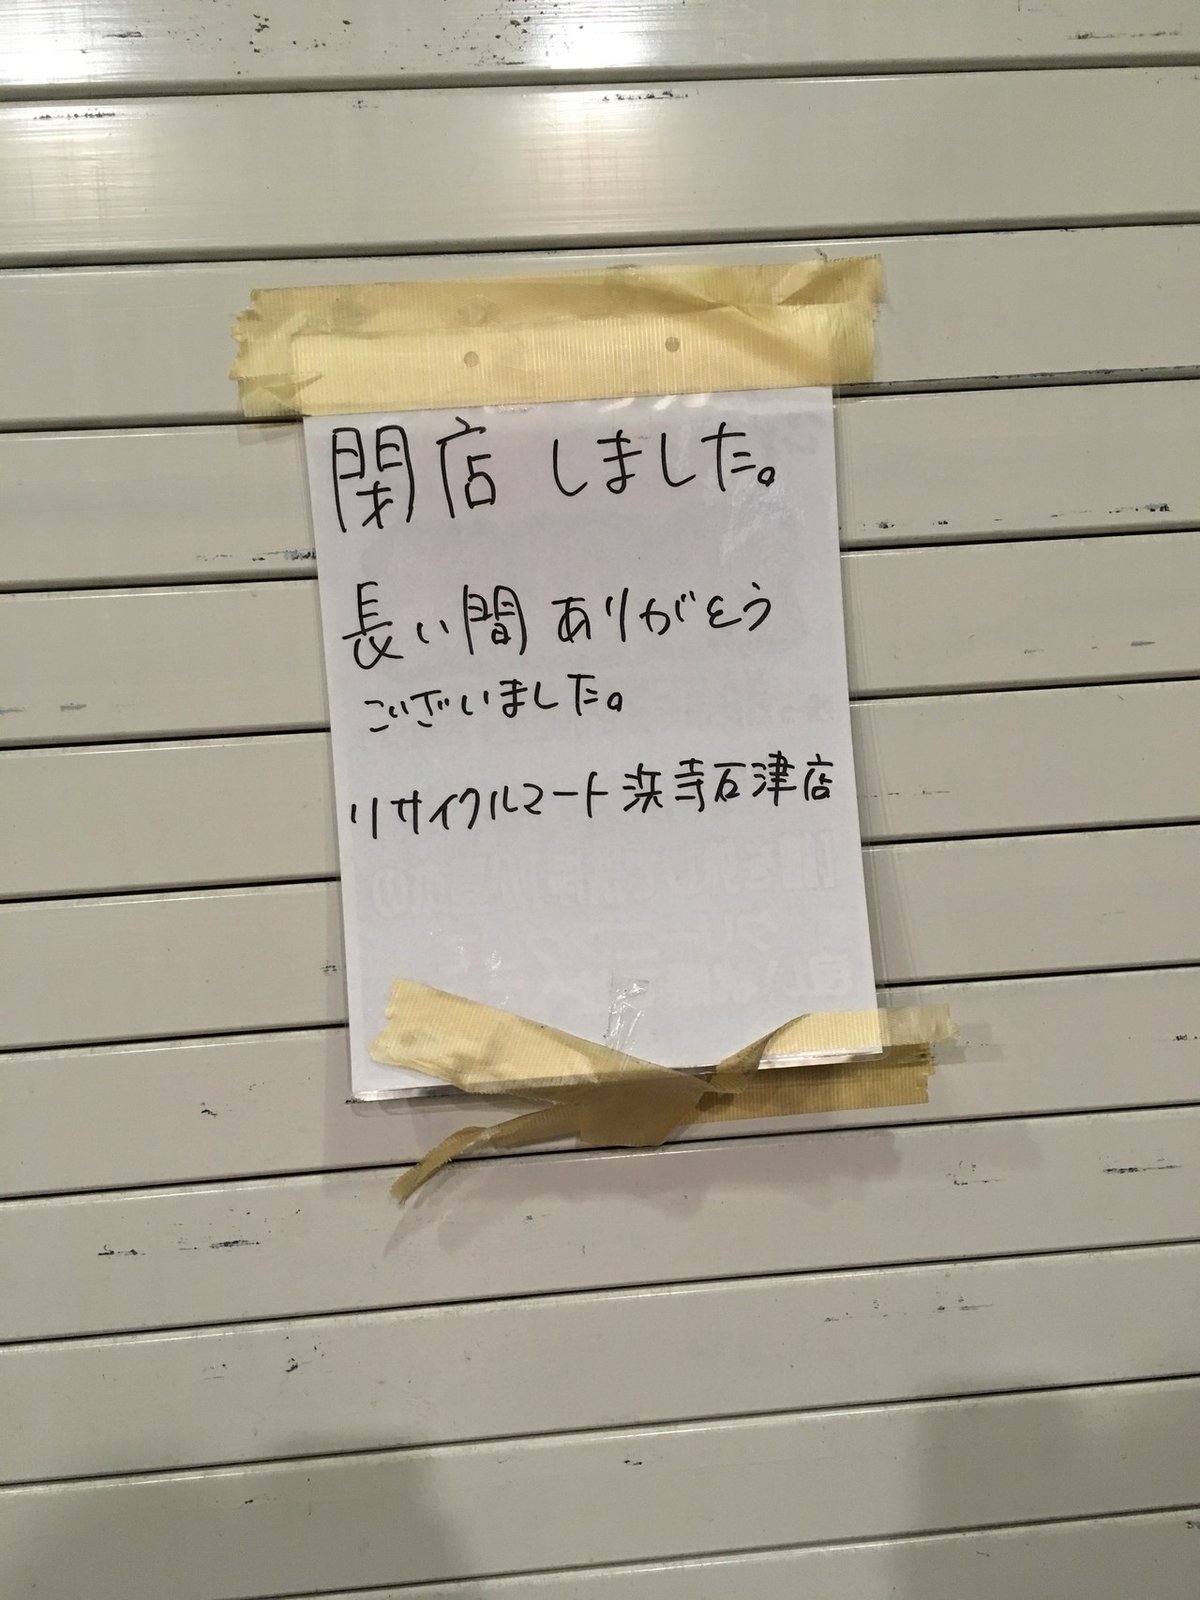 閉店しました。
長い間ありがとう
ございました。
リサイクルマート浜寺石津店